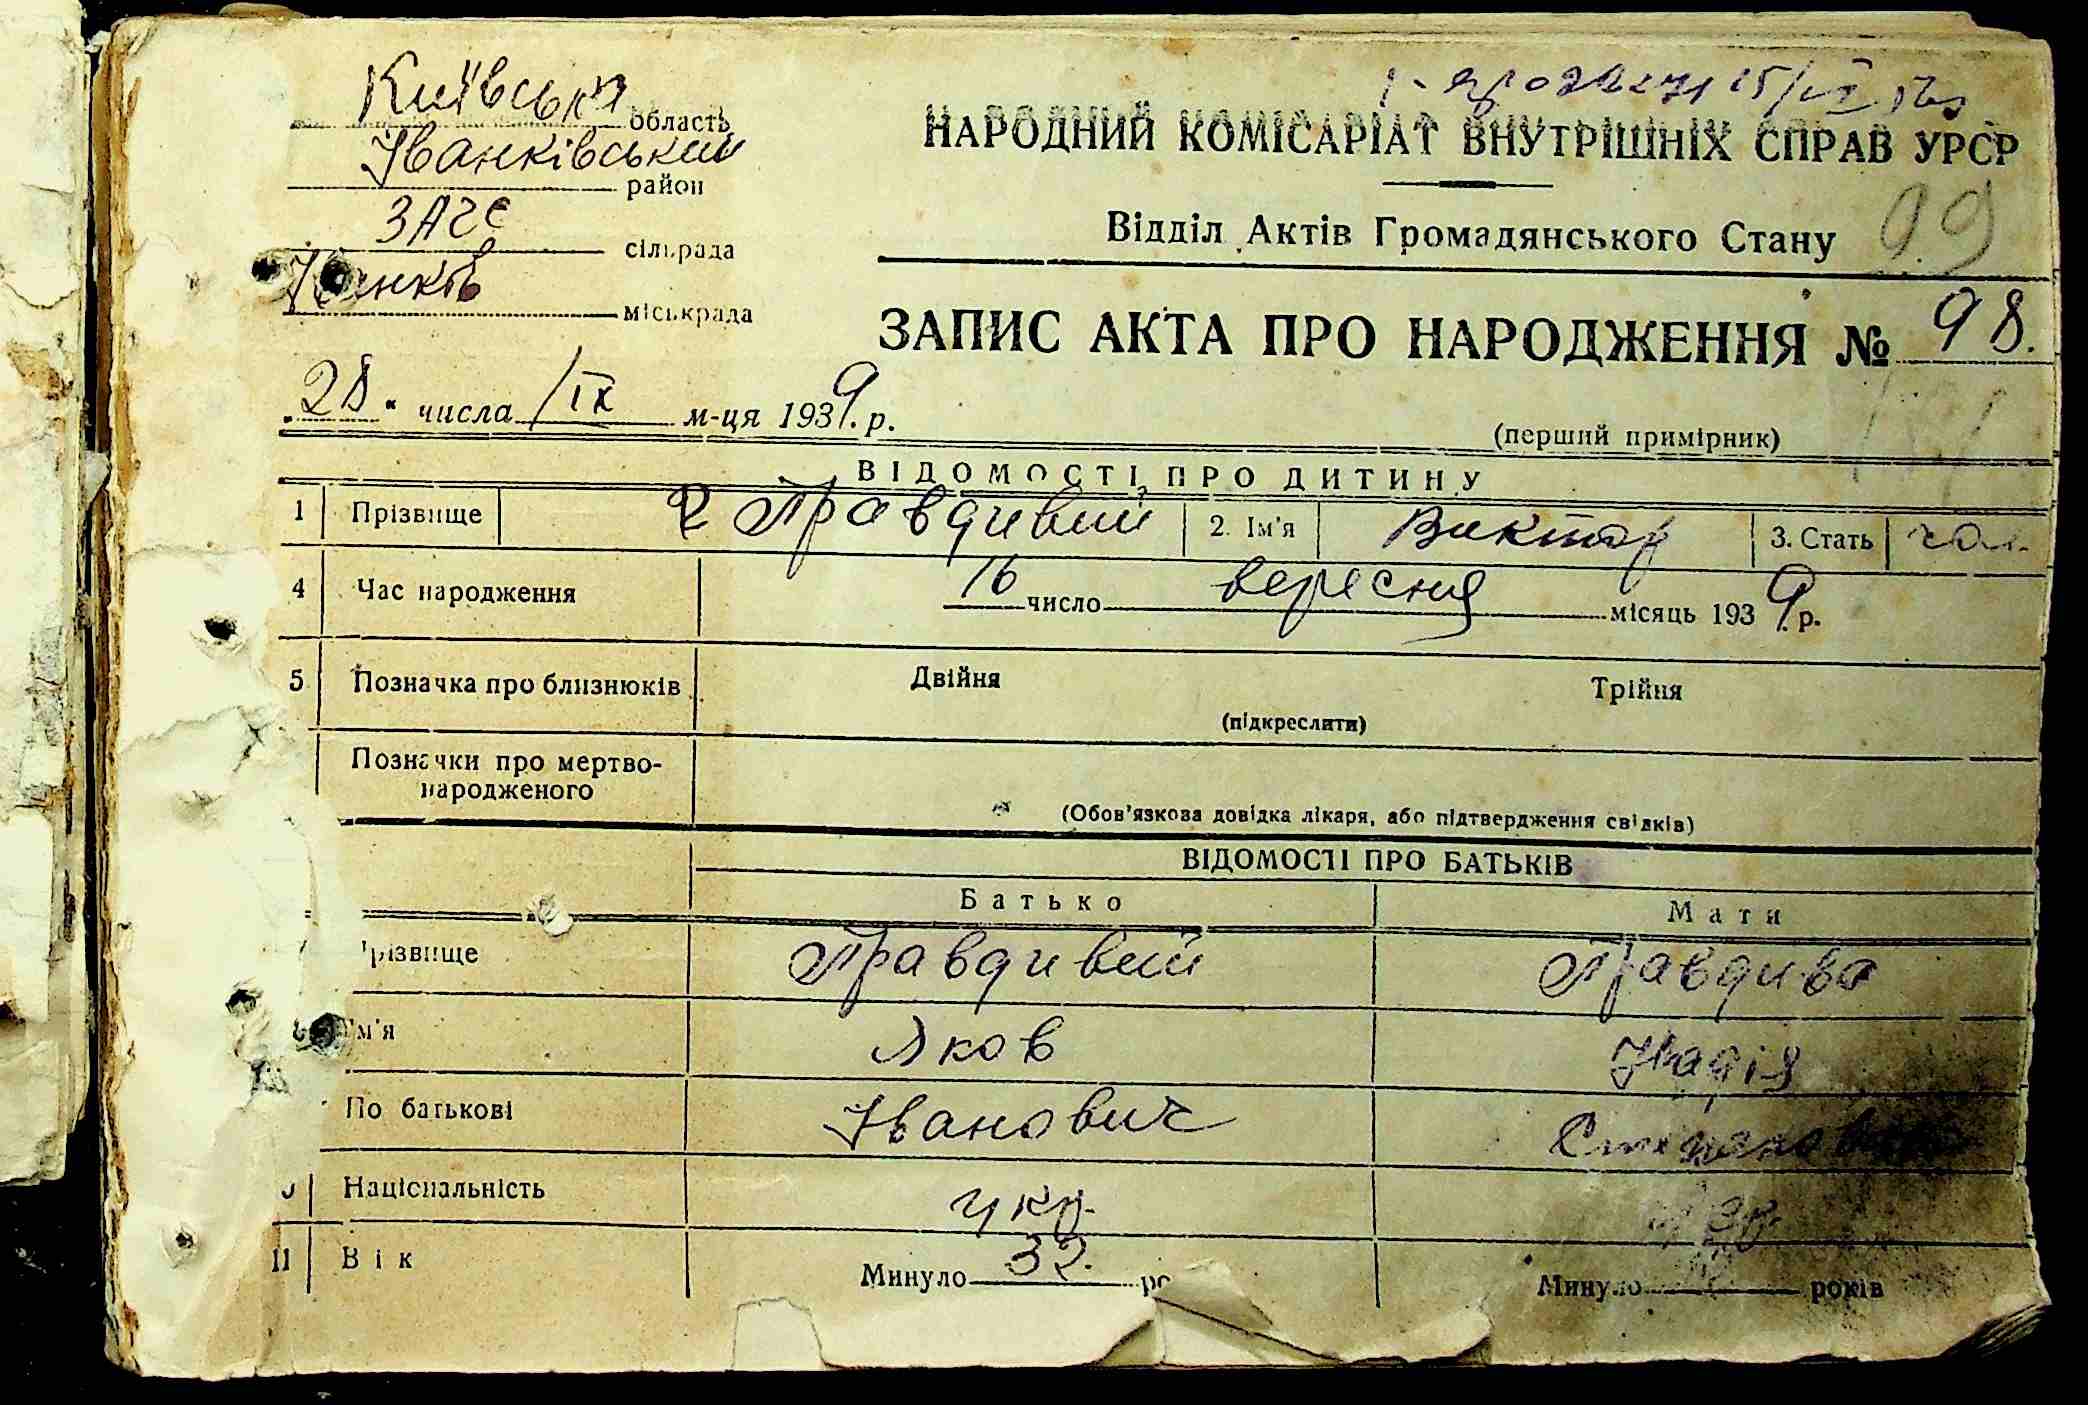 Київська область
Іванківський район
ЗАГС сільрада
Іванків міськрада
НАРОДНИЙ КОМІСАРІАТ ВНУТРІШНІХ СПРАВ УРСР
Відділ Актів Громадянського Стану
99
ЗАПИС АКТА ПРО НАРОДЖЕННЯ № 98.
28 " числа IX м-ця 1939 р.
(перший примірник)
ВІДОМОСТІ ПРО ДИТИНУ
1 Прізвище Правдивий 2. Ім'я Виктор 3. Стать чол.
4 Час народження 16 число вересня місяць 1939 р.
5 Позначка про близнюків Двійня Трійня
(підкреслити)
Позначки про мертво-
народженого
(Обов'язкова довідка лікаря, або підтвердження свідків)
ВІДОМОСТІ ПРО БАТЬКІВ
Батько Мати
Прізвище Правдивий Правдива
8 Ім'я Яков Надія
По батькові Іванович Степановна
Національність укр. укр.
11 Вік Минуло 32 Минуло років